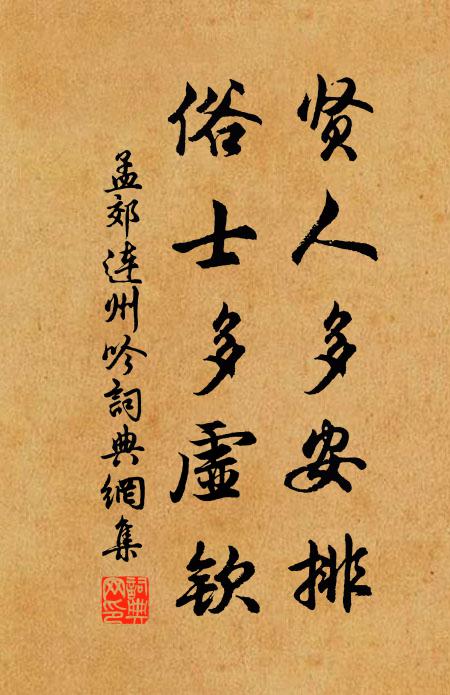 贤人多安排
俗士多虚钦
孟郊连州吟词典網集
詞典网印